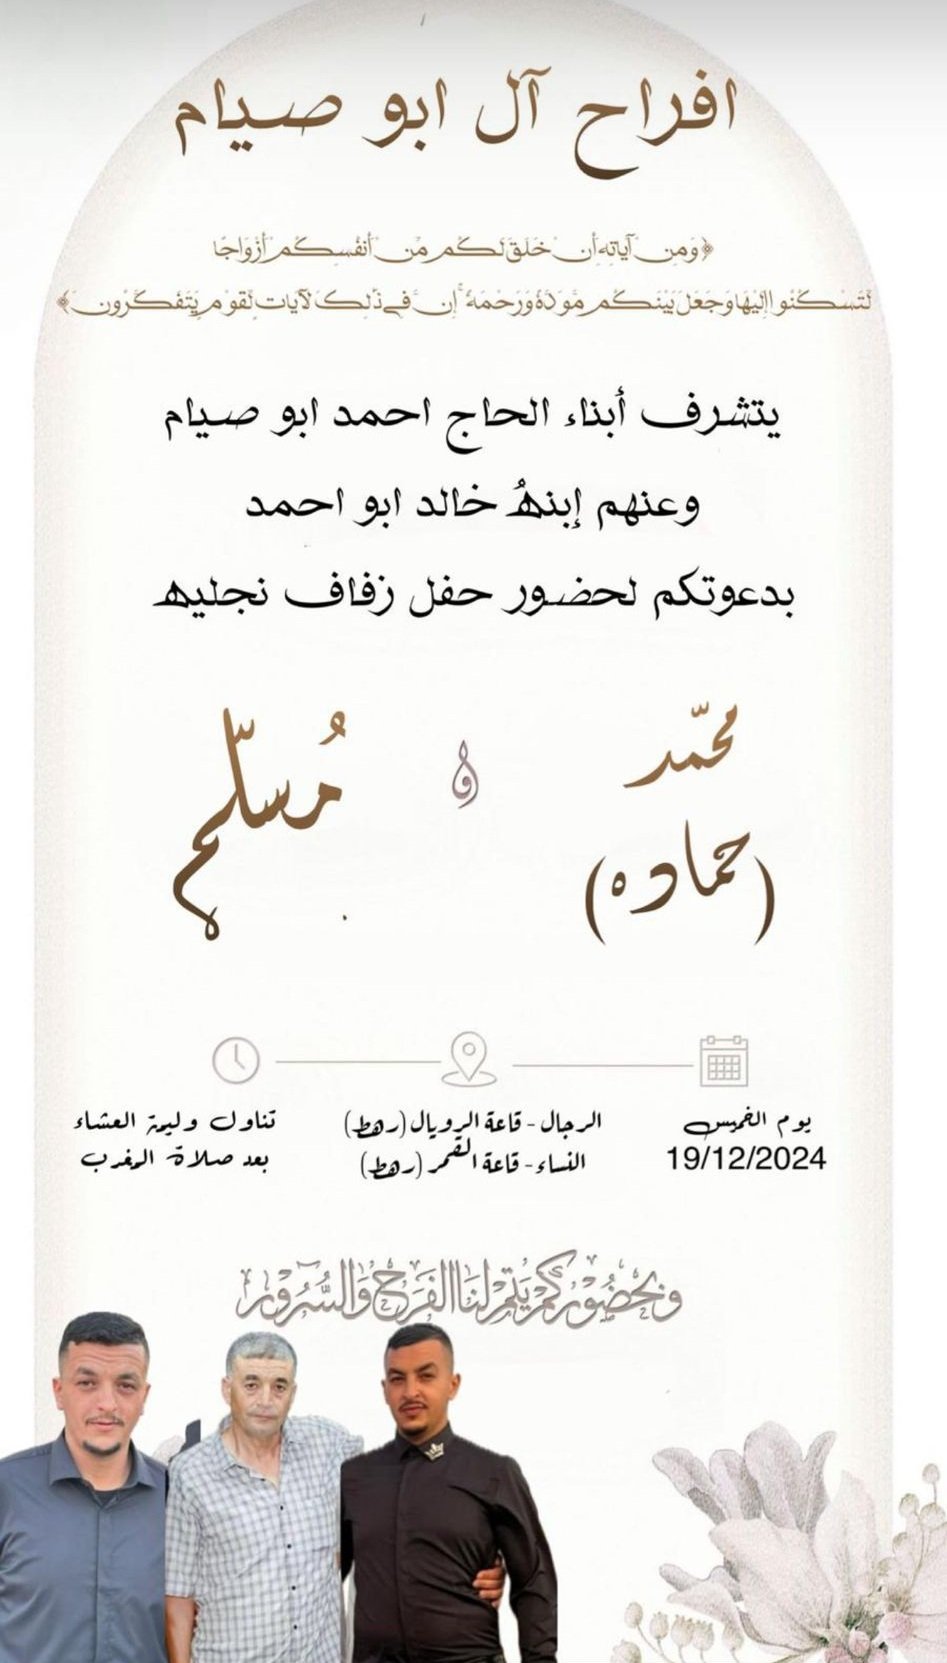 افراح آل ابو صيام
﴿وَمِنْ آيَاتِهِ أَنْ خَلَقَ لَكُم مِّنْ أَنفُسِكُمْ أَزْوَاجًا
لِّتَسْكُنُوا إِلَيْهَا وَجَعَلَ بَيْنَكُم مَّوَدَّةً وَرَحْمَةً إِنَّ فِي ذَٰلِكَ لَآيَاتٍ لِّقَوْمٍ يَتَفَكَّرُونَ﴾
يتشرف أبناء الحاج احمد ابو صيام
وعنهم إبنهُ خالد ابو احمد
بدعوتكم لحضور حفل زفاف نجليه
محمّد
(حماده)
و
مُسلّم
يوم الخميس
19/12/2024
الرجال - قاعة الرويال (رهط)
النساء - قاعة القمر (رهط)
تناول وليمة العشاء
بعد صلاة المغرب
وبحضوركم يتم لنا الفرح والسرور